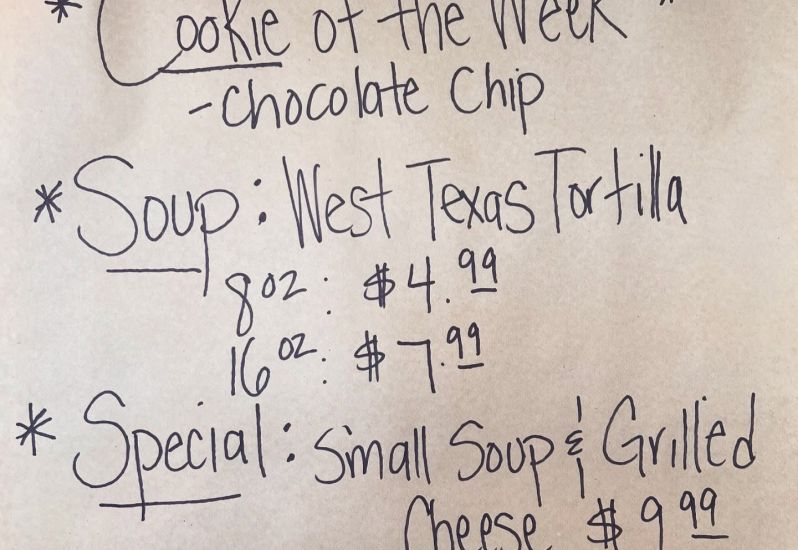 * Cookie of the Week *
-Chocolate Chip
* Soup: West Texas Tortilla
8 oz: $4.99
16 oz: $7.99
* Special: Small Soup & Grilled
Cheese $9 99